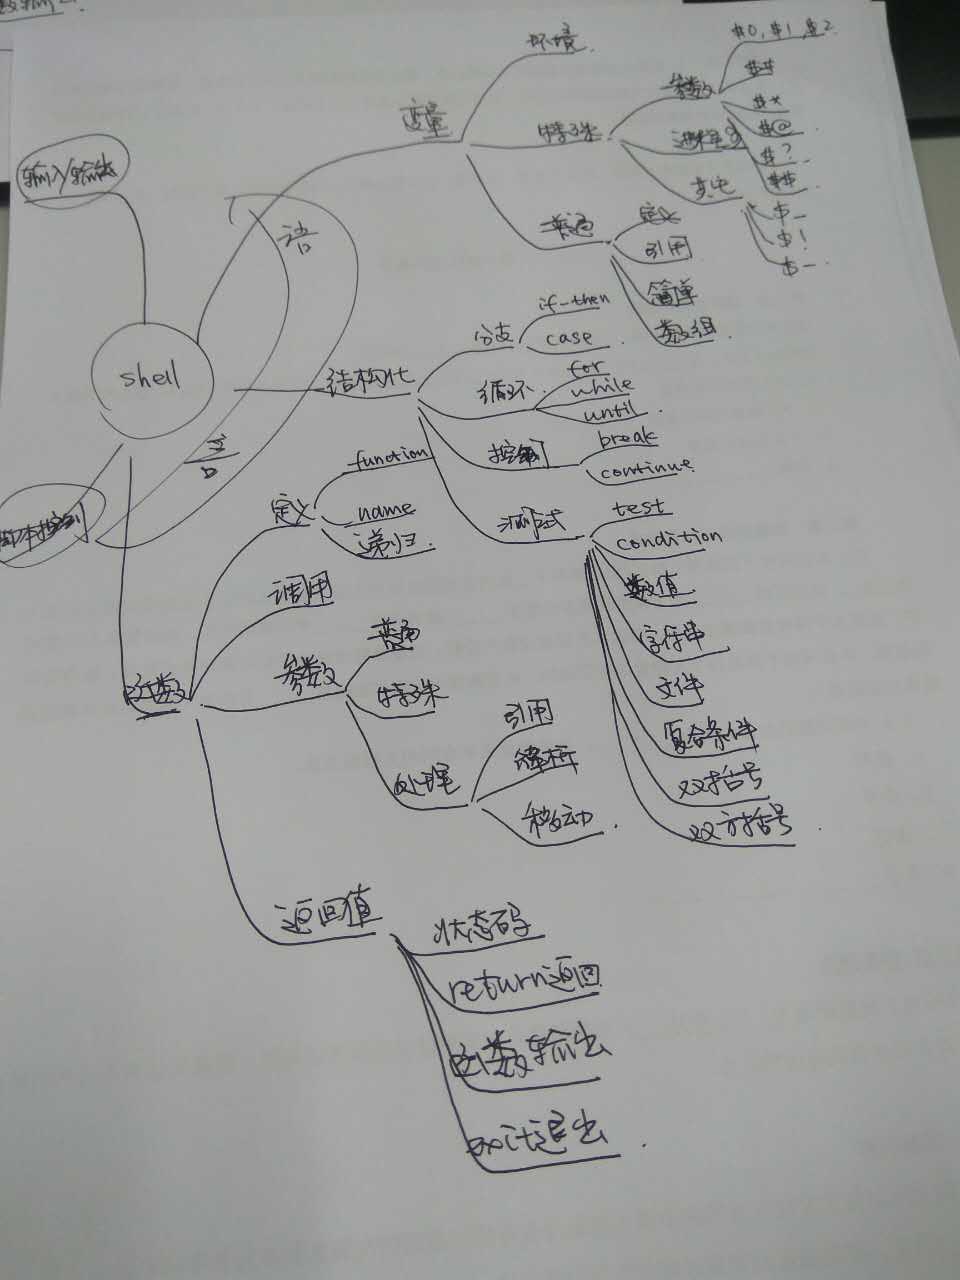 shell
输入/输出
脚本控制
语
言
变量
环境
特殊
参数
$0, $1, $2
$#
$*
$@
$?
$$
其它
$_
$!
$-
普通
定义
引用
简单
数组
结构化
分支
if-then
case
循环
for
while
until
控制
break
continue
测试
test
condition
数值
字符串
文件
复合条件
双括号
双方括号
函数
定义
function
name
递归
调用
参数
普通
特殊
处理
引用
移动
返回值
状态码
return返回
函数输出
exit退出